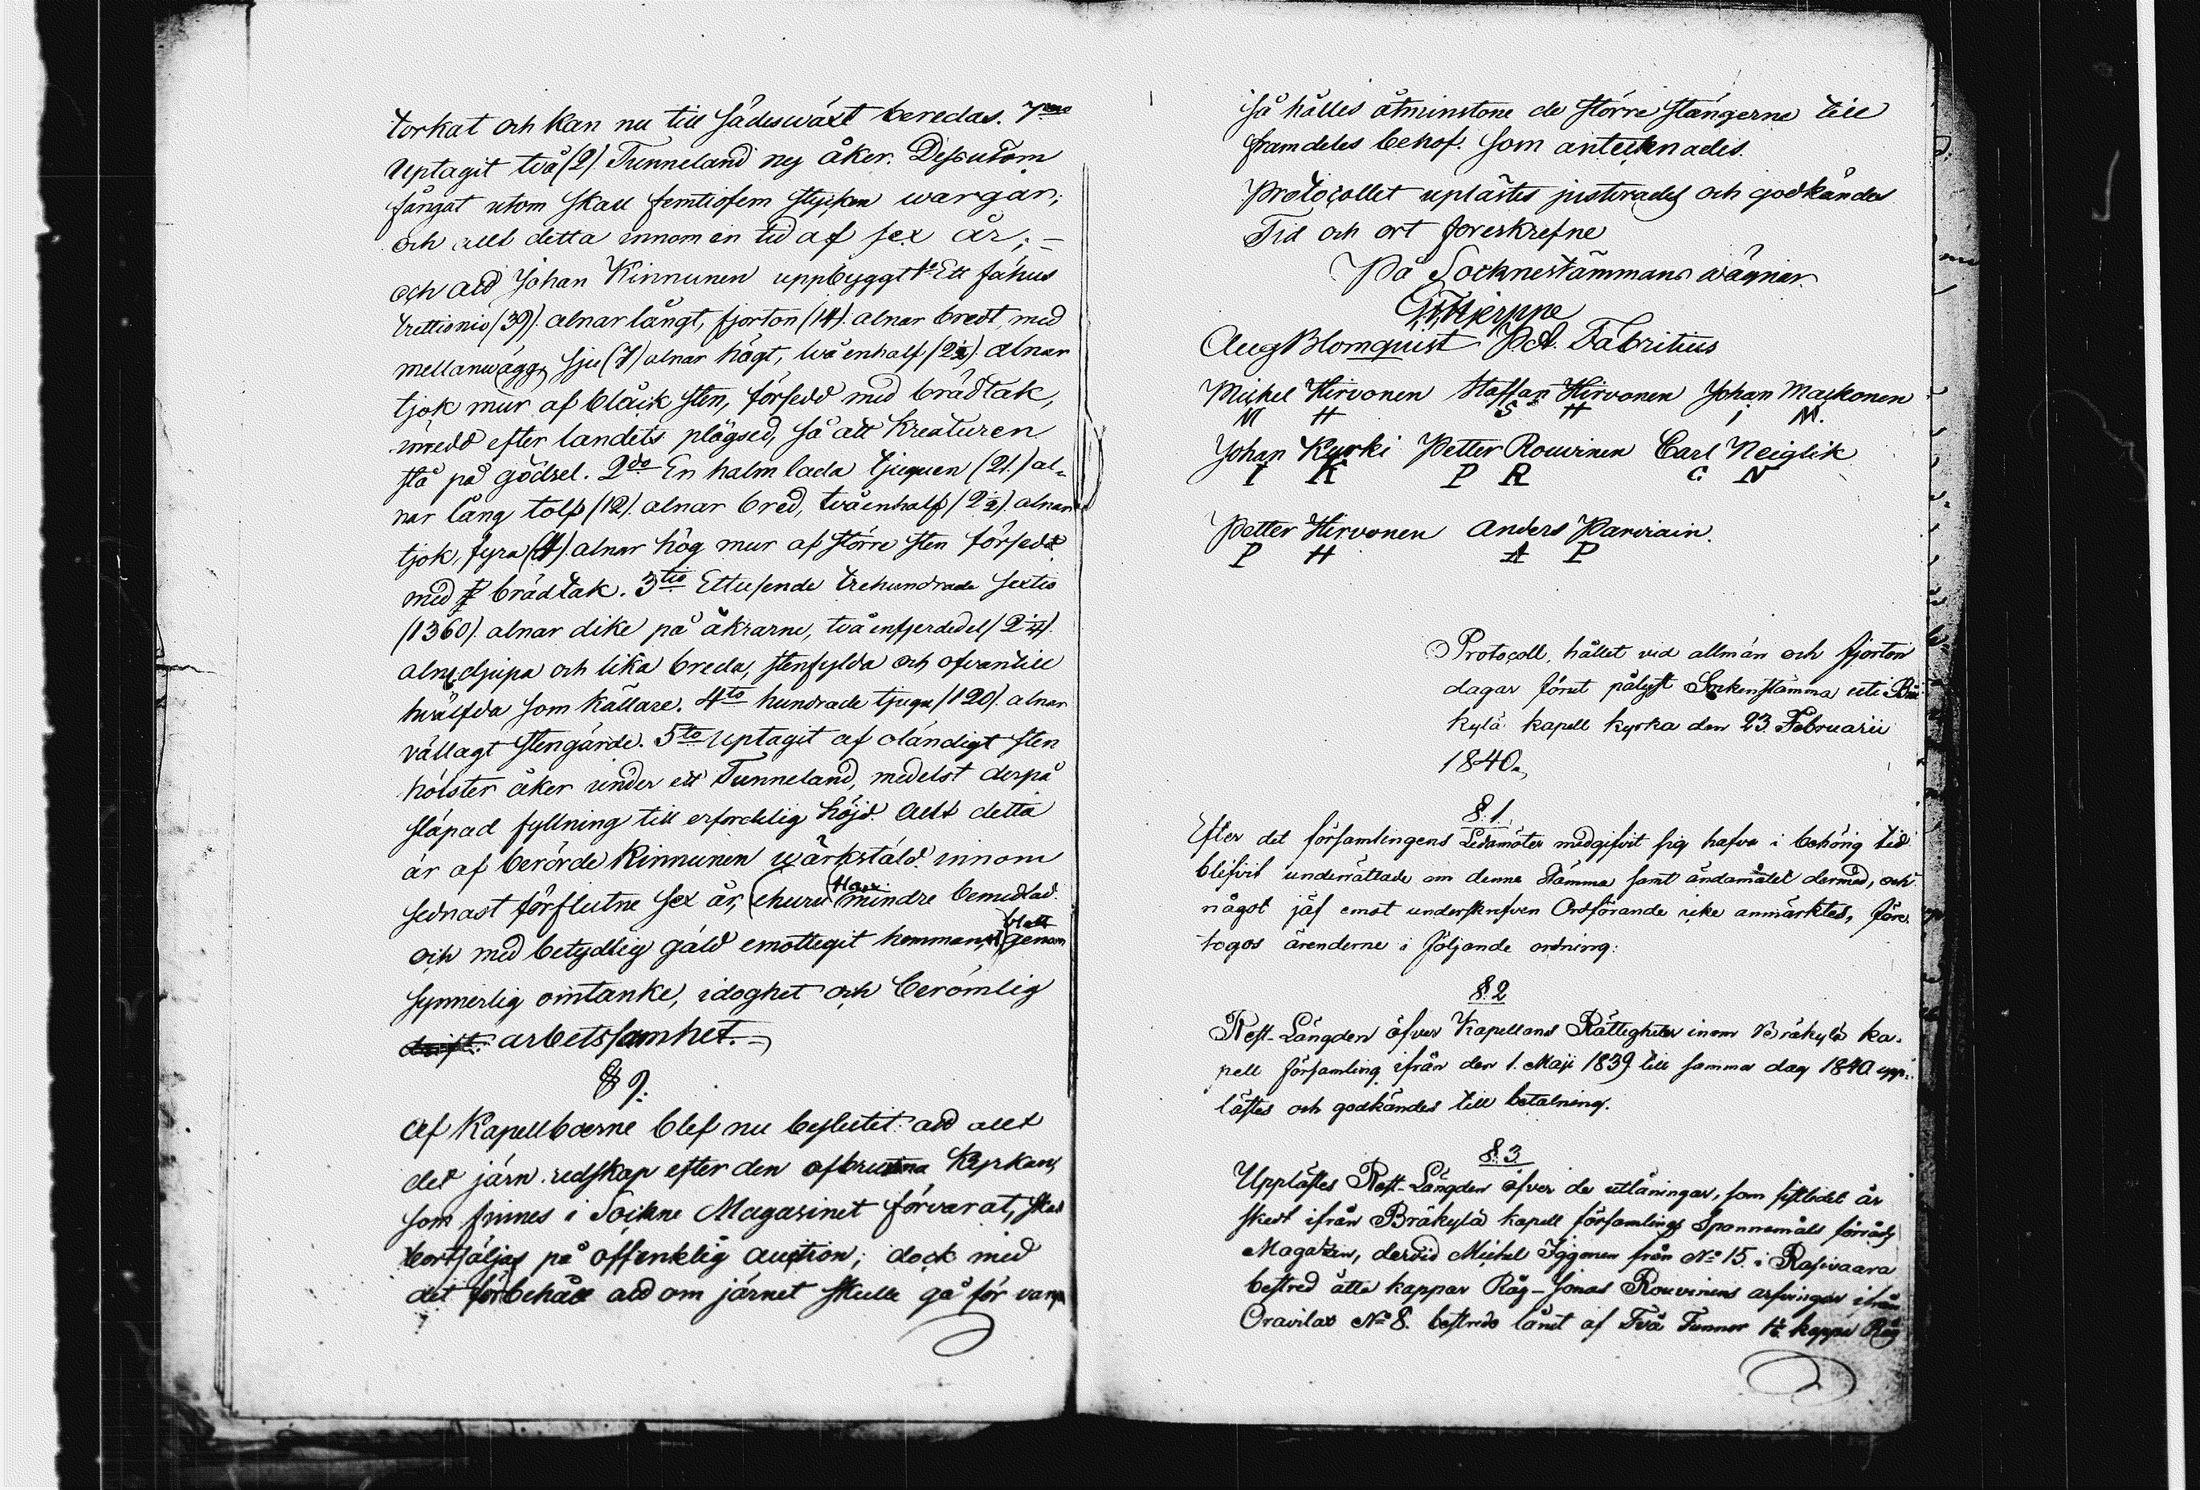 torkat och kan nu till sädeswäxt beredas. 7mo
Uptagit två (2) Tunneland ny åker. Dessutom
fångat utom skall femtiofem stycken wargar;
och allt detta innom en tid af sex år; =
och att Johan Kinnunen uppbyggt 1o Ett fähus
trettionio (39). alnar långt, fjorton (14). alnar bredt, med
mellanwägg, sju (7) alnar högt, två enhalf (2½). alnar
tjok mur af sten, försedd med brädtak,
inredt efter landets plägsed, så att Kreaturen
stå på gödsel. 2do En halmlada tjuguen (21.) al-
nar lång tolf (12). alnar bred, tvåenhalf (2½). alnar
tjok, fyra (4). alnar hög mur af större sten försedt
med brädtak. 3tio Ettusende trehundrade sextio
(1360). alnar dike på åkrarne, två enfjerdedel (2¼).
alnar djupa och lika breda, stenfylda och ofvantill
hwälfda som källare. 4to hundrade tjugu (120). alnar
vällagt stengärde. 5to Uptagit af oländigt sten
hölster åker under ett Tunneland, medelst derpå
släpad fyllning till erforderlig höjd. Allt detta
är af berörde Kinnunen wärkstäld innom
sednast förflutne sex år, ehuru Han mindre bemedlad
och med betydlig gäld emottagit hemmanet, genom
synnerlig omtanke, idoghet och berömlig
drift. arbetssamhet. =
§ 9.
Af Kapellboerne blef nu beslutet att allt
det järn redskap efter den afbrutna Kyrkan,
som finnes i Sockne Magasinet förvarat, skall
bortsäljas på offenklig auction; dock med
det förbehåll att om järnet skulle gå för
så hålles åtminstone de större stängerne till
framdeles behof. Som antecknades.
Protocollet uplästes justerades och godkändes
Tid och ort föreskrefne
På Socknestämmans wägnar.
Aug Blomquist P.A. Fabritius
Michel Hirvonen Staffan Hirvonen Johan Maskonen
M H S H I M.
Johan Kurki Petter Rouvinen Carl Neiglik
I K P R C N
Petter Hirvonen Anders Parviain.
P H A P
Protocoll, hållet vid allmän och fjorton
dagar förut pålyst Sockenstämma uti Brä
kylä kapell kyrka den 23 Februarii
1840.
§. 1.
Efter det församlingens Ledamöter medgifvit sig hafva i behörig tid
blifvit underrättade om denna Stämma samt ändamålet dermed, och
något jäf emot underskrefven Ordförande icke anmärktes, före
togos ärenderne i följande ordning:
§. 2
Rest-Längden öfver Kapellans Rättigheter inom Bräkylä ka-
pell församling ifrån den 1. Maji 1839 till samma dag 1840 upp-
lästes och godkändes till betalning.
§. 3
Upplästes Rest-Längden öfver de utlåningar, som sistledet år
skedt ifrån Bräkylä kapell församlings Spannemåls förråds
Magazin, dervid Michel Iggonen från No 15. i Rasivaara
bestred åtta kappar Råg - Jonas Rouvinens arfvingar ifrån
Oravilax No 8. bestridt lånet af Två Tunnor kappe Råg